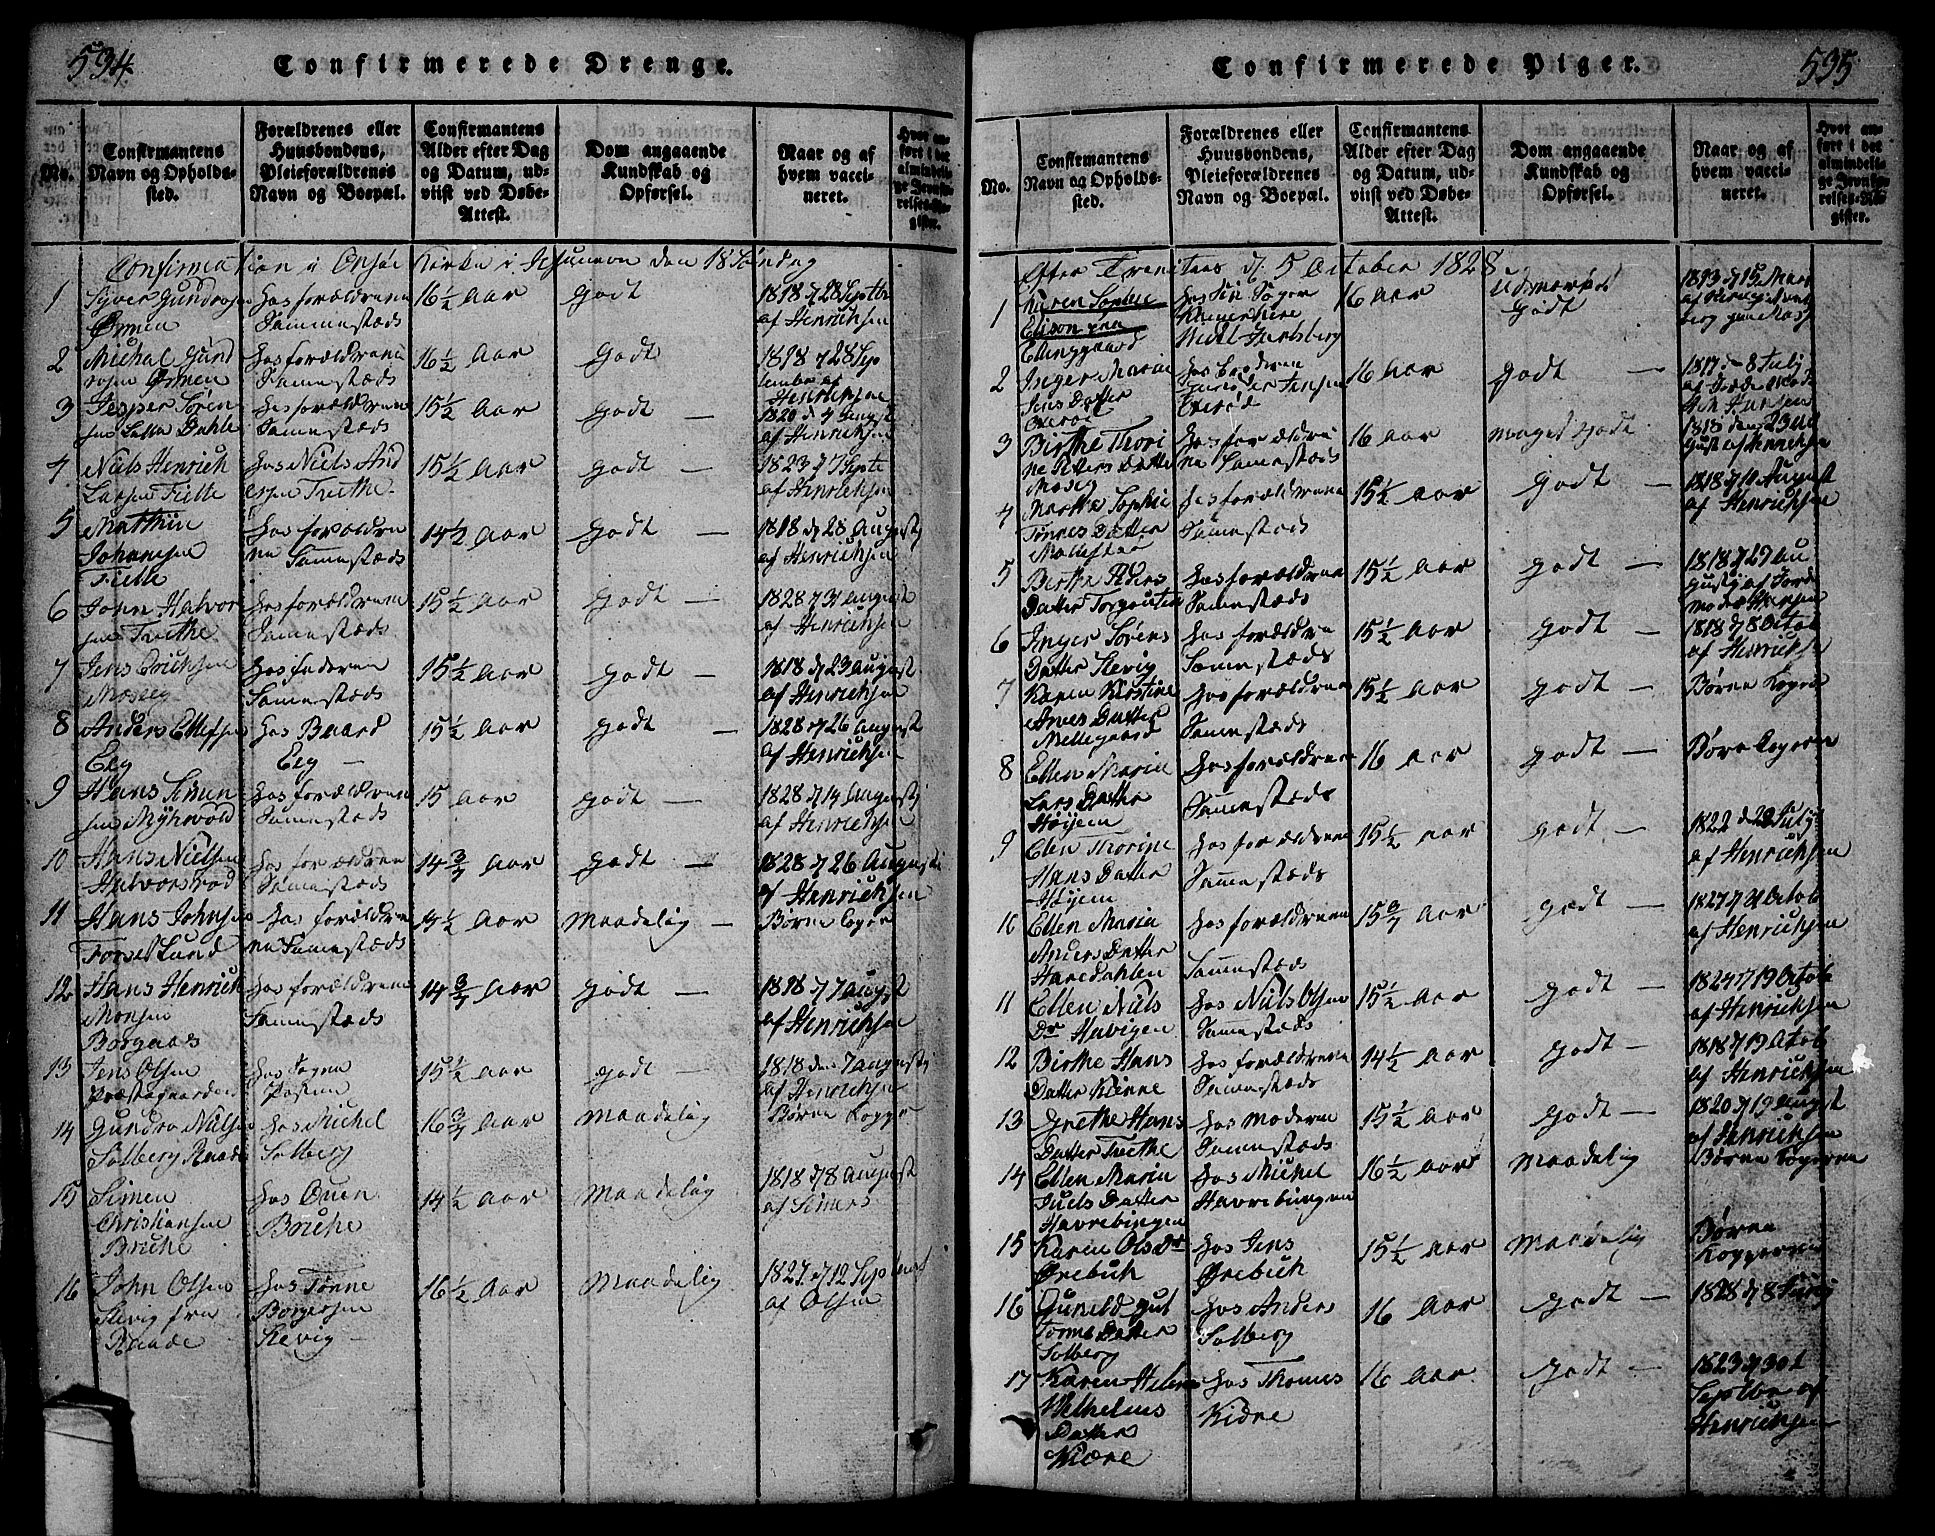 534
Confirmerede Drenge.
No.
Confirmantens
Navn og Opholds-
sted.
Forældrenes eller
Huusbondens,
Pleieforældrenes
Navn og Boepæl.
Confirmantens
Alder efter Dag
og Datum, ud-
viist ved Døbe-
Attest.
Dom angaaende
Kundskab og
Opførsel.
Naar og af
hvem vacci-
neret.
Confirmation i Onsøe Kirke i den 18 Søndag
1
Syver Gundersøn
Ørmen
hos forældrene
Sammestæds
16 1/2 Aar
Godt
1818 d 28 Septb
af Henrichsen
2
Michal Gund
ersen Ørmen
hos forældrene
Sammestæds
16 1/2 Aar
Godt
1818 d 28 Sep
tember af
Henrichsen
3
Jesper Sören
sen Lille Dahle
hos forældrene
Sammestæds
15 1/2 Aar
Godt —
1820 d 4 August
af Henrichsen
4
Niels Henrich
Larsen Fielle
hos Niels And
ersen Træthe
15 1/2 Aar
Godt —
1823 d 7 Septe
af Henrichsen
5
Mathiin
Johansen
Fielle
hos forældre
ne Sammestæds
14 1/2 Aar
Godt —
1818 d 28 August
af Henrichsen
6
John Halvor
sen Træthe
hos forældrene
Sammestæds
15 1/2 Aar
Godt —
1828 d 31 August
af Henrichsen
7
Jens Erichsen
Mosseg
hos faderen
Sammestæds
15 1/2 Aar
Godt —
1818 d 23 August
af Henrichsen
8
Anders Ellefsen
Eeg
hos Baard
Eeg —
15 1/2 Aar
Godt —
1828 d 26 August
af Henrichsen
9
Hans Simen
sen Myhrvold
hos forældrene
Sammestæds
15 Aar
Godt —
1828 d 14 August
af Henrichsen
10
Hans Nielsen
Halvorsrød
hos forældrene
Sammestæds
14 3/4 Aar
Godt —
1828 d 26 August
af Henrichsen
11
Hans Johnsen
Torsetlund
hos forældre
ne Sammestæds
14 1/2 Aar
Maadelig —
Børne Koger
12
Hans Henrich
Monsen
Borgaas
hos forældrene
Sammestæds
14 3/4 Aar
Godt —
1818 d 7 August
af Henrichsen
13
Jens Olsen
Præstegaarden
hos Sogne
Præsten
15 1/2 Aar
Godt —
1818 den 7 August
af Henrichsen
14
Gundro Nielsen
Solberg Raade
hos Michel
Solberg
16 3/4 Aar
Maadelig
Børne Kogger
15
Simen
Christiansen
Brithe
hos Ouen
Brithe
14 1/2 Aar
Maadelig
1818 d 8 August
af Simers
16
John Olsen
Slevig fra
Raade
hos Tønne
Borgersen
Slevig —
16 1/2 Aar
Maadelig
1827 d 12 September
af Olsen
535
Confirmerede Piger.
No.
Confirmantens
Navn og Opholds-
sted.
Forældrenes eller
Huusbondens,
Pleieforældrenes
Navn og Boepæl.
Confirmantens
Alder efter Dag
og Datum, ud-
viist ved Døbe-
Attest.
Dom angaaende
Kundskab og
Opførsel.
Naar og af
hvem vacci-
neret.
Hvor an-
ført i det
almindeli-
ge Jevnfø-
relses-Re-
gister.
Efter Trenitas d. 5 October 1828
1
Maren Sophie
Elison paa
Elinggaard
hos Sin
16 Aar
Udmærket
Godt
1813 d 15 Mart
2
Inger Maria
Jens Datter
Oxerød
16 Aar
Godt —
1817 d 8 July
af Jorde Moder
Hansen
3
Birthe Thori
ne Peters Datter
Mosseg
hos foreldre
ne Samestæds
16 Aar
Maget Godt
1818 den 23 Au
gust af Henrichsen
4
Marthe Sophie
Tønnes Datter
hos forældrene
Samestæds
15 1/2 Aar
Godt —
1818 d 10 August
af Henrichsen
5
Berthe Peders
Datter Torgouten
hos forældrene
Samestæds
15 1/2 Aar
Godt —
1818 d 27 Au
gust af Jorde
moder Hansen
6
Inger Sørens
Datter Slevig
hos foreldrene
Samestæds
15 1/2 Aar
Godt —
1818 d 8 Octob
af Henrichsen
7
Karen Kirstine
Arnes Datter
Mellegaard
hos forældrene
Samestæds
15 1/2 Aar
Godt —
Børne Kogne
8
Ellen Maria
Lars Datter
Høijem
hos forældrene
Samestæds
16 Aar
Godt —
Børe Kogern
9
Elen Thorine
Hans Datter
Høijem
hos forældrene
Samestæds
15 1/2 Aar
Godt —
1822 d 28 July
af Henrichsen
10
Ellen Maria
Anders Datter
Haredahlen
hos foreldrene
Samestæds
15 3/4 Aar
Godt —
1827 d 21 Octob
af Henrichsen
11
Ellen Niels
Dr Havigen
hos Niels Olsen
Samestæds
15 1/2 Aar
Godt —
1824 d 19 Octob
af Henrichsen
12
Birthe Hans
Datter Kienne
hos foreldrene
Samestæds
14 1/2 Aar
Godt —
1818 d 19 Octob
af Henrichsen
13
Grethe Hans
Datter Træthe
hos Moderen
Samestæds
15 1/2 Aar
Godt —
1820 d 19 August
af Henrichsen
14
Ellen Maria
Juels Datter
Havrebingen
hos Michel
Havrebingen
16 1/2 Aar
Maadelig
Børne Kogerne
15
Karen Ols Dr
Ørebuk
hos Jens
Ørebuk
15 1/2 Aar
Maadelig
Børne
Koggerne
16
Guneld Gul
Tønne Datter
Solberg
hos Anders
Solberg
16 Aar
Godt —
1828 d 8 July
17
Karen Helene
Wilhelms
Datter
Kiære
hos Thomes
Kiære
16 Aar
Godt —
1823 d 30 t
Septbr af
Henrichsen